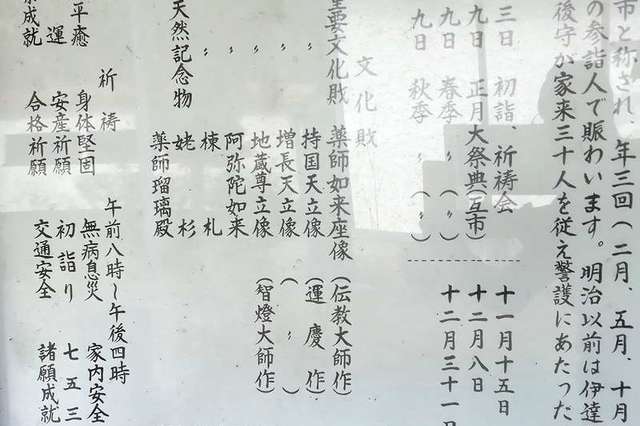 市と称され、年三回（二月、五月、十月
の参詣人で賑わいます。明治以前は伊達
後守が家来三十人を従え警護にあたった
三日 初詣、祈祷会 十一月十五日
九日 正月大祭典（互市） 十二月八日
九日 春季 〃（〃） 十二月三十一日
九日 秋季 〃（〃）
文化財
重要文化財 薬師如来座像（伝教大師作）
〃 持国天立像（運慶作）
〃 増長天立像（〃）
〃 地蔵尊立像（智燈大師作）
〃 阿弥陀如来
〃 棟札
天然記念物 姥杉
薬師瑠璃殿
祈祷 午前八時～午後四時
身体堅固 無病息災 家内安全
平癒 安産祈願 初詣り 七五三
運 合格祈願 交通安全 諸願成就
成就